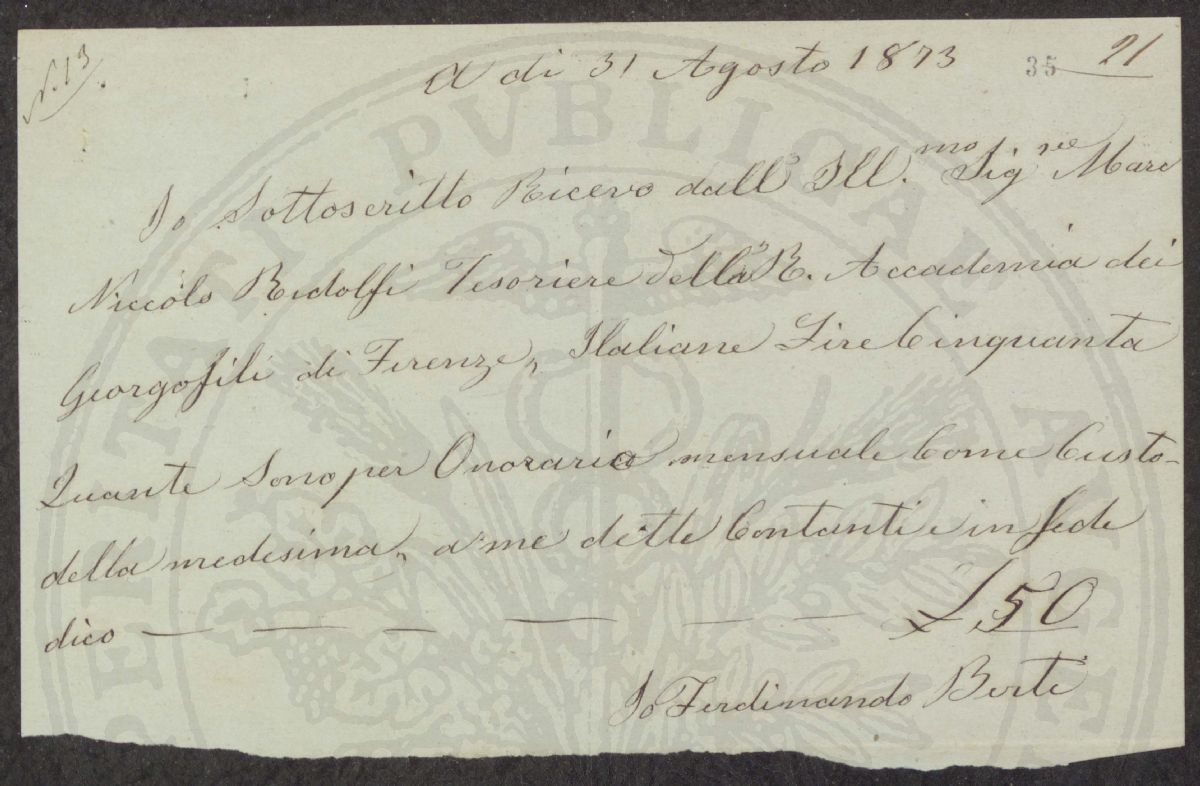 N. 13
A dì 31 Agosto 1873
35 21
Io Sottoscritto Ricevo dall' Ill.mo Sig.re Marc
Niccolò Ridolfi Tesoriere della R. Accademia dei
Georgofili di Firenze, Italiane Lire Cinquanta
Quante Sono per Onorario mensuale Come Custo-
della medesima, a me dette Contanti e in fede
dico — — — — — — £ 50
Io Ferdinando Berti
PVBLICAE